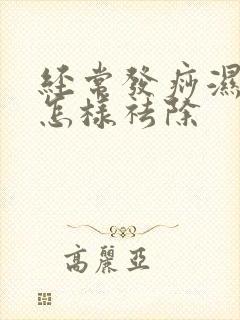 經常發痧濕
怎樣祛除
高麗亞